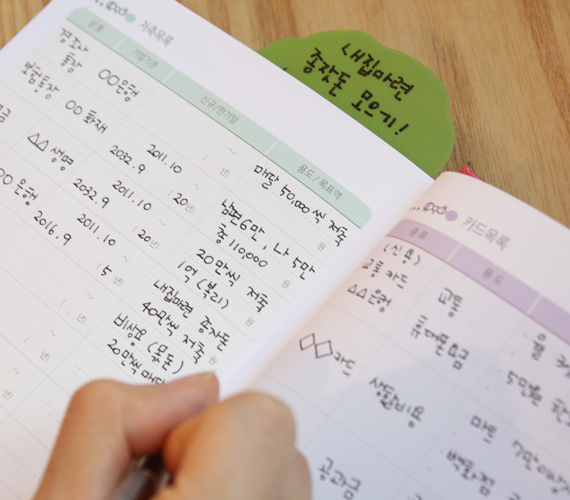 내집마련
종잣돈 모으기!
저축목록
상품
가입기관
신규/만기일
용도/목표액
경조사
통장
○○은행
~
매달 50,000씩 저축
원
보험통장
○○ 화재
2011.10
~
2032.9
(20년)
남편6만, 나 5만
총 110,000
원
△△ 생명
2011.10
~
2032.9
(20년)
20만씩 저축
1억 (복리)
원
○○ 은행
2011.10
~
2016.9
(5년)
내집마련 종잣돈
40만씩 저축
원
비상용 (목돈)
20만씩 매달
카드목록
종류
용도
(신용)
교통 카드
△△은행
교통
휴대폰요금
◇◇카드
생활비용
마트
백화점
공과금